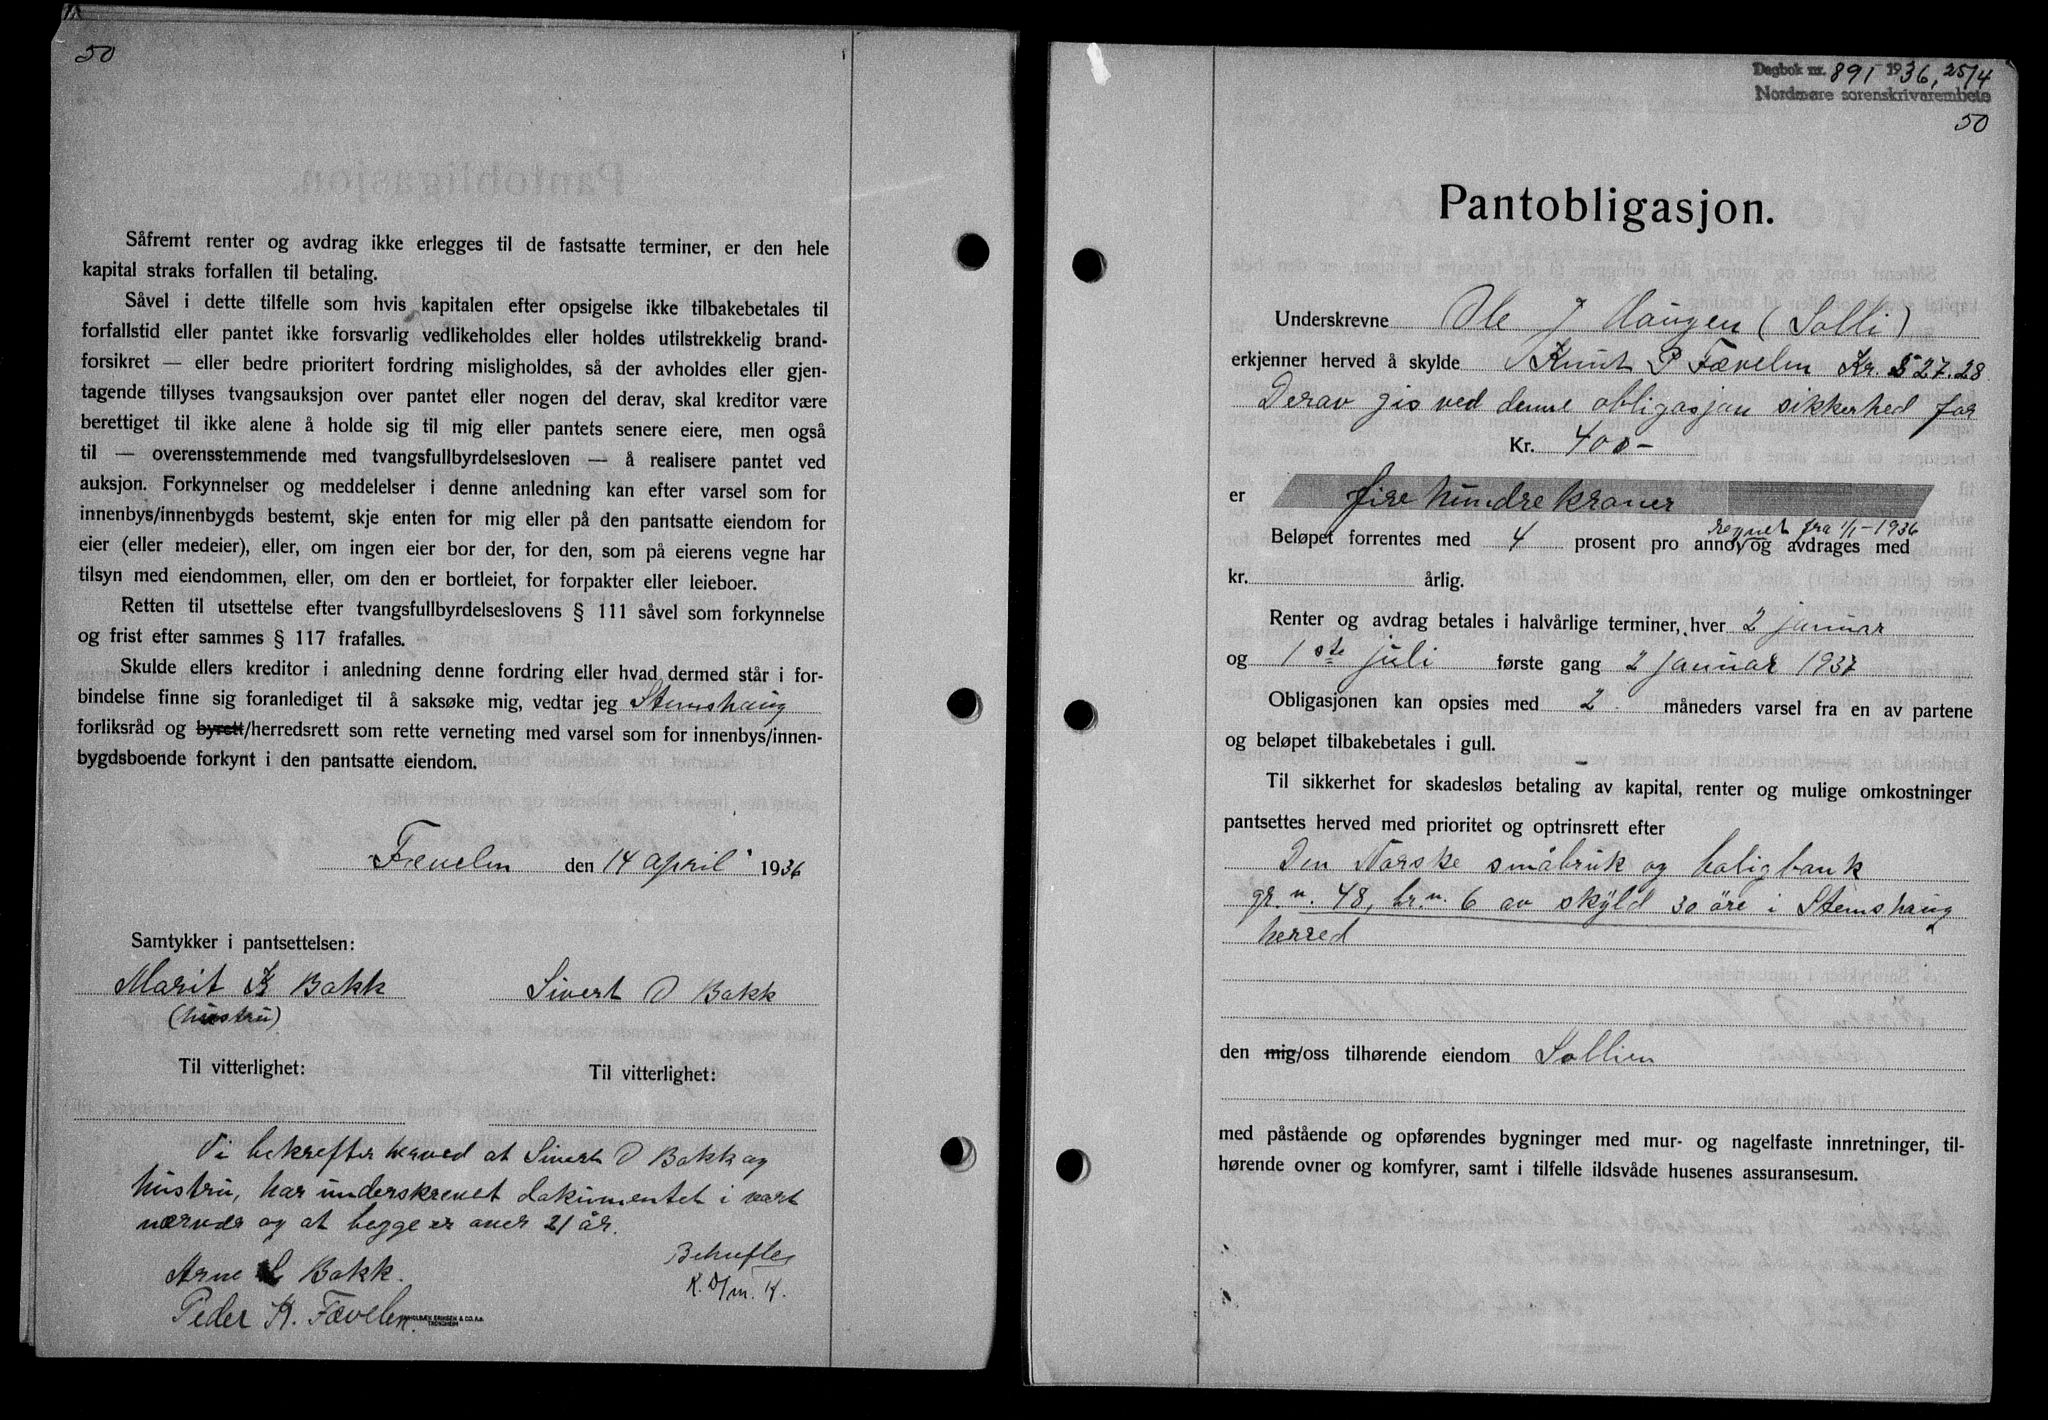 50
Såfremt renter og avdrag ikke erlegges til de fastsatte terminer, er den hele
kapital straks forfallen til betaling.
Såvel i dette tilfelle som hvis kapitalen efter opsigelse ikke tilbakebetales til
forfallstid eller pantet ikke forsvarlig vedlikeholdes eller holdes utilstrekkelig brand-
forsikret — eller bedre prioritert fordring misligholdes, så der avholdes eller gjen-
tagende tillyses tvangsauksjon over pantet eller nogen del derav, skal kreditor være
berettiget til ikke alene å holde sig til mig eller pantets senere eiere, men også
til — overensstemmende med tvangsfullbyrdelsesloven — å realisere pantet ved
auksjon. Forkynnelser og meddelelser i denne anledning kan efter varsel som for
innenbys/innenbygds bestemt, skje enten for mig eller på den pantsatte eiendom for
eier (eller medeier), eller, om ingen eier bor der, for den, som på eierens vegne har
tilsyn med eiendommen, eller, om den er bortleiet, for forpakter eller leieboer.
Retten til utsettelse efter tvangsfullbyrdelseslovens § 111 såvel som forkynnelse
og frist efter sammes § 117 frafalles.
Skulde ellers kreditor i anledning denne fordring eller hvad dermed står i for-
bindelse finne sig foranlediget til å saksøke mig, vedtar jeg Stemshaug
forliksråd og byrett/herredsrett som rette verneting med varsel som for innenbys/innen-
bygdsboende forkynt i den pantsatte eiendom.
Fævelen den 14 april 1936
Samtykker i pantsettelsen:
Marit K Bakk Sivert O Bakk
(hustru)
Til vitterlighet: Til vitterlighet:
Vi bekrefter herved at Sivert O Bakk og
hustru, har underskrevet dokumentet i vart
nærvær og at begge er over 21 år.
Arne L Bakk.
Peder K. Fævelen.
Behufles
K. O/m. K.
SHOLBÆK ERIKSEN & CO. A.S.
TRONDHEIM
Dagbok nr. 891 1936, 25/4
Nordmøre sorenskrivarembete
50
Pantobligasjon.
Underskrevne Ole J Haugen (Solli)
erkjenner herved å skylde Knut P Fævelen Kr. 527.28
Derav gis ved denne obligasjon sikkerhed for
Kr. 400-
er fire hundre kroner
regnet fra 1/1-1936
Beløpet forrentes med 4 prosent pro anno, og avdrages med
kr. årlig.
Renter og avdrag betales i halvårlige terminer, hver 2 januar
og 1ste juli første gang 2 januar 1937
Obligasjonen kan opsies med 2 måneders varsel fra en av partene
og beløpet tilbakebetales i gull.
Til sikkerhet for skadesløs betaling av kapital, renter og mulige omkostninger
pantsettes herved med prioritet og optrinsrett efter
Den Norske småbruk og boligbank
gr.n. 48, br.n. 6 av skyld 30 øre i Stemshaug
herred
den mig/oss tilhørende eiendom Sollien
med påstående og opførendes bygninger med mur- og nagelfaste innretninger, til-
hørende ovner og komfyrer, samt i tilfelle ildsvåde husenes assuransesum.